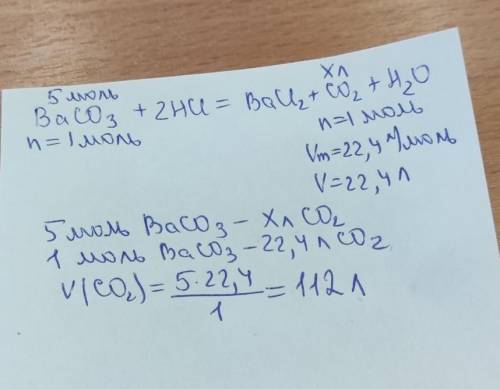 5 моль хл
BaCO3 + 2HCl = BaCl2 + CO2 + H2O
n=1 моль n=1 моль
Vm=22,4 л/моль
V=22,4 л
5 моль BaCO3 – Xл CO2
1 моль BaCO3 – 22,4 л CO2
V(CO2) = 5·22,4 / 1 = 112 л